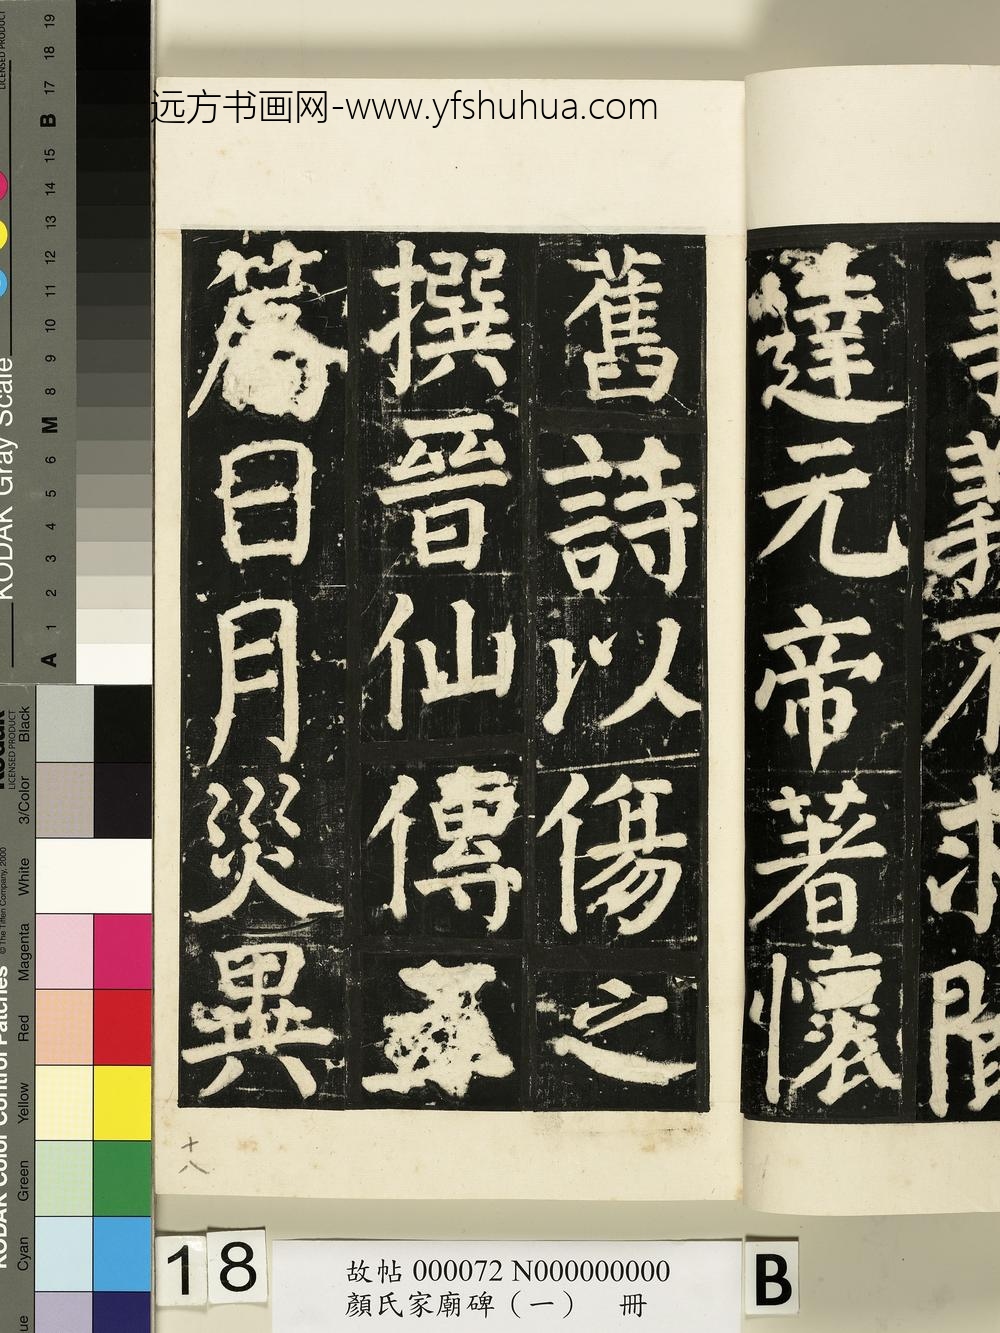 远方书画网-www.yfshuhua.com
不求聞
達元帝著懷
舊詩以傷之
撰晉仙傳五
篇日月災異
十八
18
故帖 000072 N000000000
顏氏家廟碑（一） 冊
B
KODAK Gray Scale
LICENSED PRODUCT
A 1 2 3 4 5 6 M 8 9 10 11 12 13 14 15 B 17 18 19
KODAK Color Control Patches
© The Tiffen Company, 2000
Kodak
LICENSED PRODUCT
Cyan Green Yellow Red Magenta White 3/Color Black